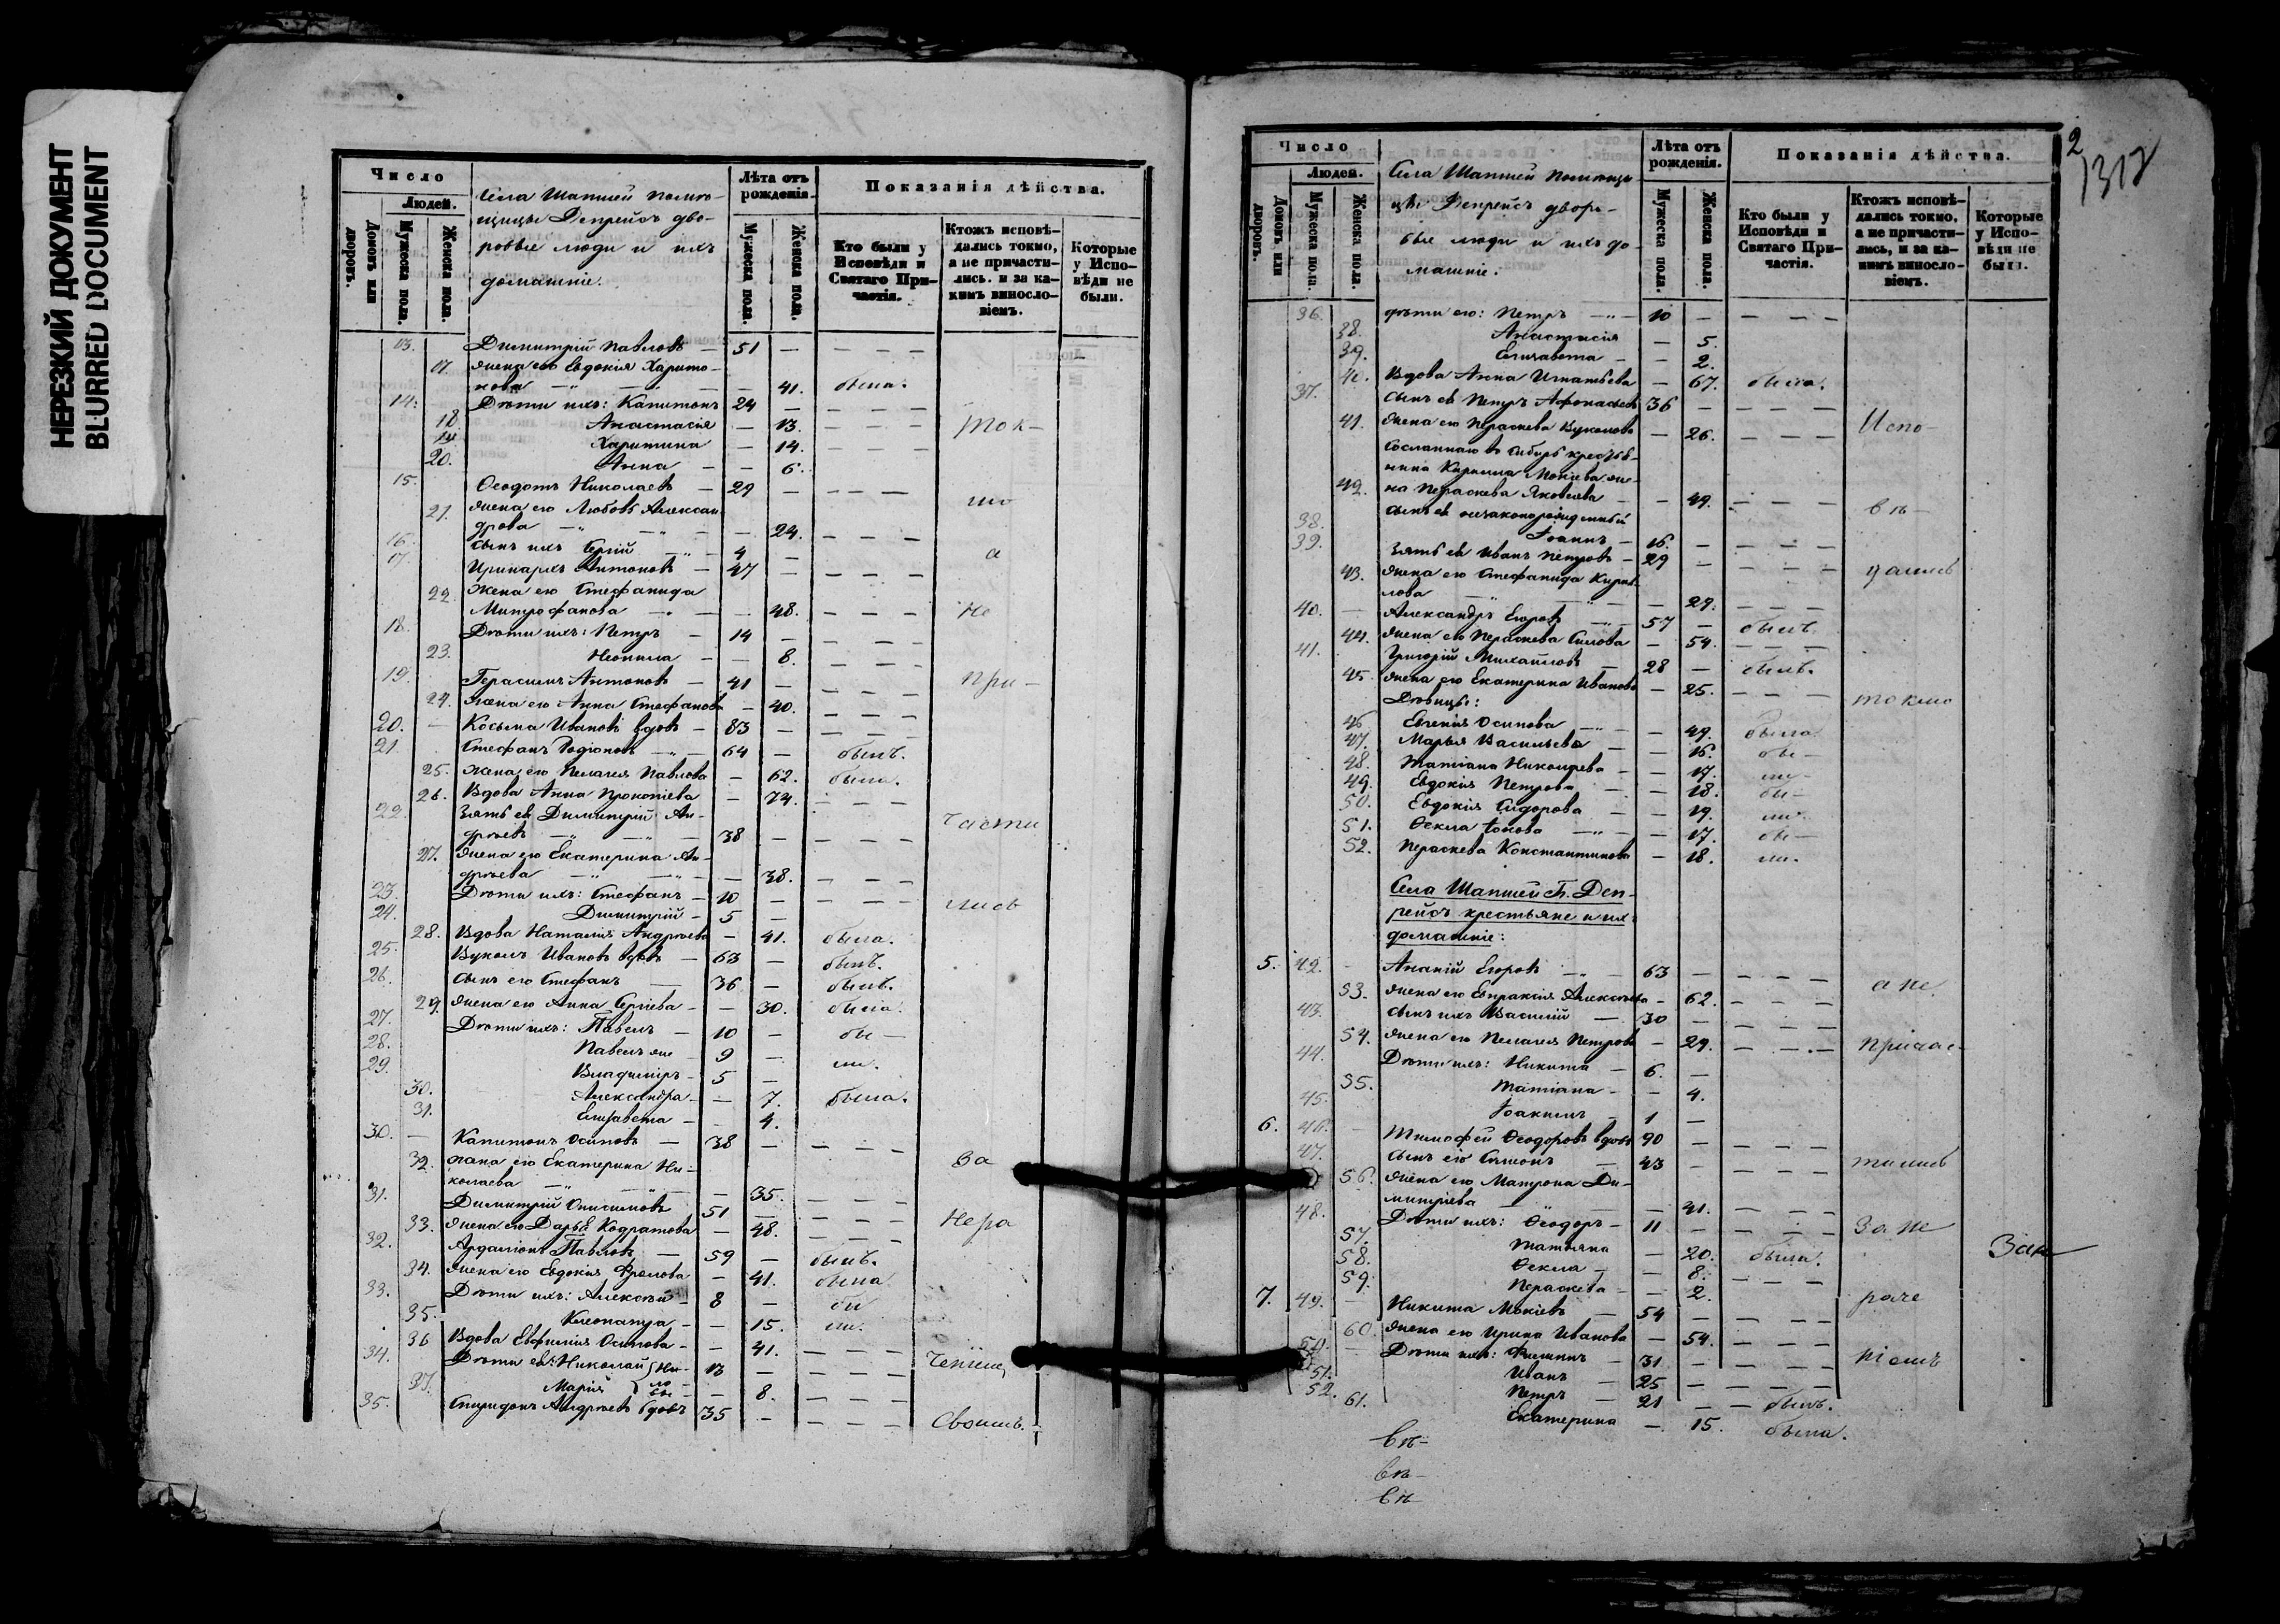 НЕРЕЗКИЙ ДОКУМЕНТ
BLURRED DOCUMENT
Число
Людей.
Домовъ или дворовъ.
Мужеска пола.
Женска пола.
Села Шапшей помѣ-
щицы Депрейсъ дво-
ровые люди и ихъ
домашніе.
Лѣта отъ рожденія.
Мужеска пола.
Женска пола.
Показанія дѣйства.
Кто были у Исповѣди и Святаго При-частія.
Ктожъ исповѣ-дались токмо, а не причасти-лись. и за ка-кимъ винословіемъ.
Которые у Испо-вѣди не были.
13. Димитрій Павловъ — 51 —
17. жена его Евдокія Харито-
нова — 41. была.
14. Дѣти ихъ: Капитонъ 24 —
18. Анастасія — 13. Ток-
19. Харитина — 14.
20. Анна — 6.
15. Ѳеодотъ Николаевъ — 29 — мо
21. жена его Любовь Алексан-
дрова — 24.
16. сынъ ихъ Сергій — 4 — а
17. Иринархъ Антоновъ — 47 —
22. жена его Стефанида
Митрофанова — 48. не
18. Дѣти ихъ: Петръ — 14 —
23. Неонила — 8.
19. Герасимъ Антоновъ — 41 — при-
24. жена его Анна Стефанова — 40.
20. Косьма Ивановъ вдовъ — 83 —
21. Стефанъ Родіоновъ — 64 — былъ.
25. жена его Пелагея Павлова — 62. была.
26. Вдова Анна Прокопіева — 74.
22. Зять ея Димитрій Ан-
дреевъ — 38 — части
27. жена его Екатерина Ан-
дреева — 38.
23. Дѣти ихъ: Стефанъ — 10 —
24. Димитрій — 5 — лись
28. Вдова Наталія Андреева — 41. была.
25. Вуколъ Ивановъ вдовъ — 63 — былъ.
26. сынъ его Стефанъ — 36 — былъ.
29. жена его Анна Сергіева — 30. была.
27. Дѣти ихъ: Павелъ — 10 — бы-
28. Павелъ же — 9 — ли.
29. Владиміръ — 5 —
30. Александра — 7. была.
31. Елизавета — 4.
30. Капитонъ Осиповъ — 38 —
32. жена его Екатерина Ни-
колаева — 35. за
31. Димитрій Онисимовъ 51 —
33. жена его Дарья Кодратова — 48. нера
32. Ардаліонъ Павловъ — 59 — былъ.
34. жена его Евдокія Фролова — 41. была
33. Дѣти ихъ: Алексѣй — 8 — бы
35. Клеопатра — 15. ли.
36 Вдова Евфимія Осипова — 41.
34. Дѣти ея: Николай 13 — ченіем
37. Марія — 8.
35. Спиридонъ Андреевъ вдовъ 35 — своимъ.
2
1317
Число
Людей.
Домовъ или дворовъ.
Мужеска пола.
Женска пола.
Села Шапшей помѣщи-
цы Депрейсъ дворо-
вые люди и ихъ до-
машніе.
Лѣта отъ рожденія.
Мужеска пола.
Женска пола.
Показанія дѣйства.
Кто были у Исповѣди и Святаго При-частія.
Ктожъ исповѣ-дались токмо, а не причасти-лись, и за ка-кимъ винословіемъ.
Которые у Испо-вѣди не были.
36. дѣти его: Петръ — 10 —
38. Анастасія — 5.
39. Елизавета — 2.
40. Вдова Анна Игнатьева — 67. была.
37. сынъ ея Петръ Афонасьевъ 36 —
41. жена его Параскева Вуколова — 26. Испо-
Сосланнаго въ Сибирь крестья-
нина Кирилла Мокіева же-
42. на Параскева Яковлева — 49. вѣ-
38. сынъ ея незаконорожденный
Іоаннъ — 16. —
39. Зять ея Иванъ Петровъ — 29 —
43. жена его Стефанида Кирил-
лова — 29. дались
40. Александръ Егоровъ — 57 — былъ.
44. жена его Параскева Силова — 54.
41. Григорій Михайловъ — 28 — былъ.
45. жена его Екатерина Иванова — 25. токмо
Дѣвицы:
46 Евгенія Осипова — 49. была
47. Марья Васильева — 16. бы-
48. Татіана Никонорова — 17. ли-
49. Евдокія Петрова — 18. бы-
50. Евдокія Сидорова — 19. ли.
51. Ѳекла Іонова — 17. бы-
52. Параскева Константинова — 18. ли.
Села Шапшей Г. Деп-
рейсъ крестьяне и их
домашніе:
5. 42. Ананій Егоровъ — 63 —
53. жена его Евпраксія Алексѣева — 62. а не
43. сынъ ихъ Василій — 30 —
54. жена его Пелагея Петрова — 29. причас-
44. Дѣти ихъ: Никита — 6. —
55. Татіана — 4.
45. Іоакимъ — 1 —
6. 46. Тимофей Ѳеодоровъ вдовъ 90 —
47. сынъ его Симеонъ — 43 — тились
56. жена его Матрона Ди-
митріева — 41.
48. Дѣти ихъ: Ѳеодоръ — 11 — За не
57. Татьяна — 20. была.
58. Ѳекла — 8.
59. Параскева — 2. раче
7. 49. Никита Мокіевъ — 54
60. жена его Ирина Иванова — 54.
50. Дѣти ихъ: Филиппъ — 31 — ніемъ
51. Иванъ — 25 —
52. Петръ — 21 — былъ.
61. Екатерина — 15. была.
Зан
вѣ-
вѣ-
вѣ-